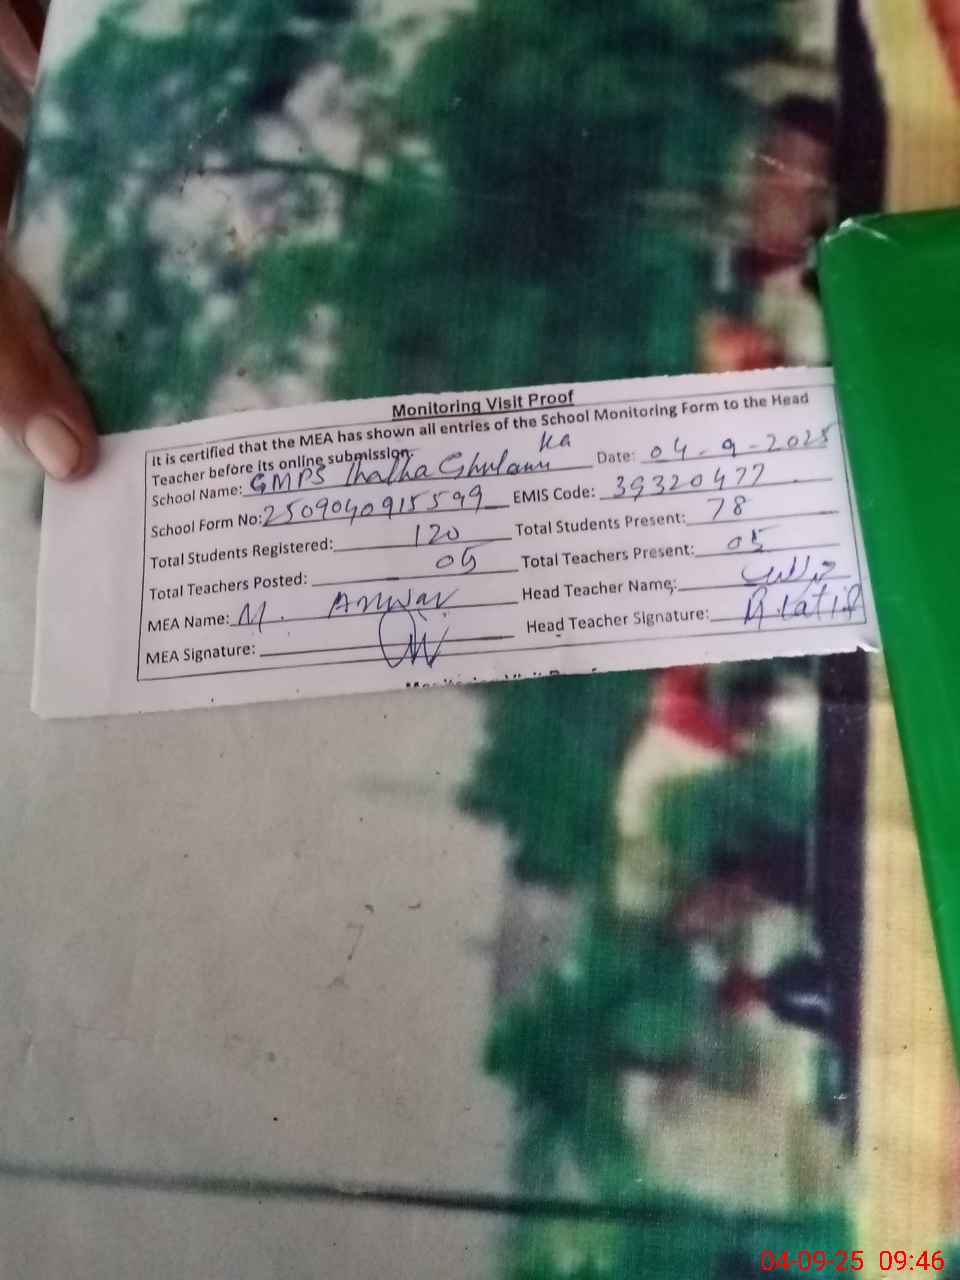 Monitoring Visit Proof
It is certified that the MEA has shown all entries of the School Monitoring Form to the Head
Teacher before its online submission.
School Name: GMPS Thatha Ghulam ka Date: 04-9-2025
School Form No: 250904091 5599 EMIS Code: 39320477
Total Students Registered: 120 Total Students Present: 78
Total Teachers Posted: 05 Total Teachers Present: 05
MEA Name: M. Anwar Head Teacher Name:
MEA Signature: Head Teacher Signature: A Latif
Monitoring Visit Proof
04-09-25 09:46